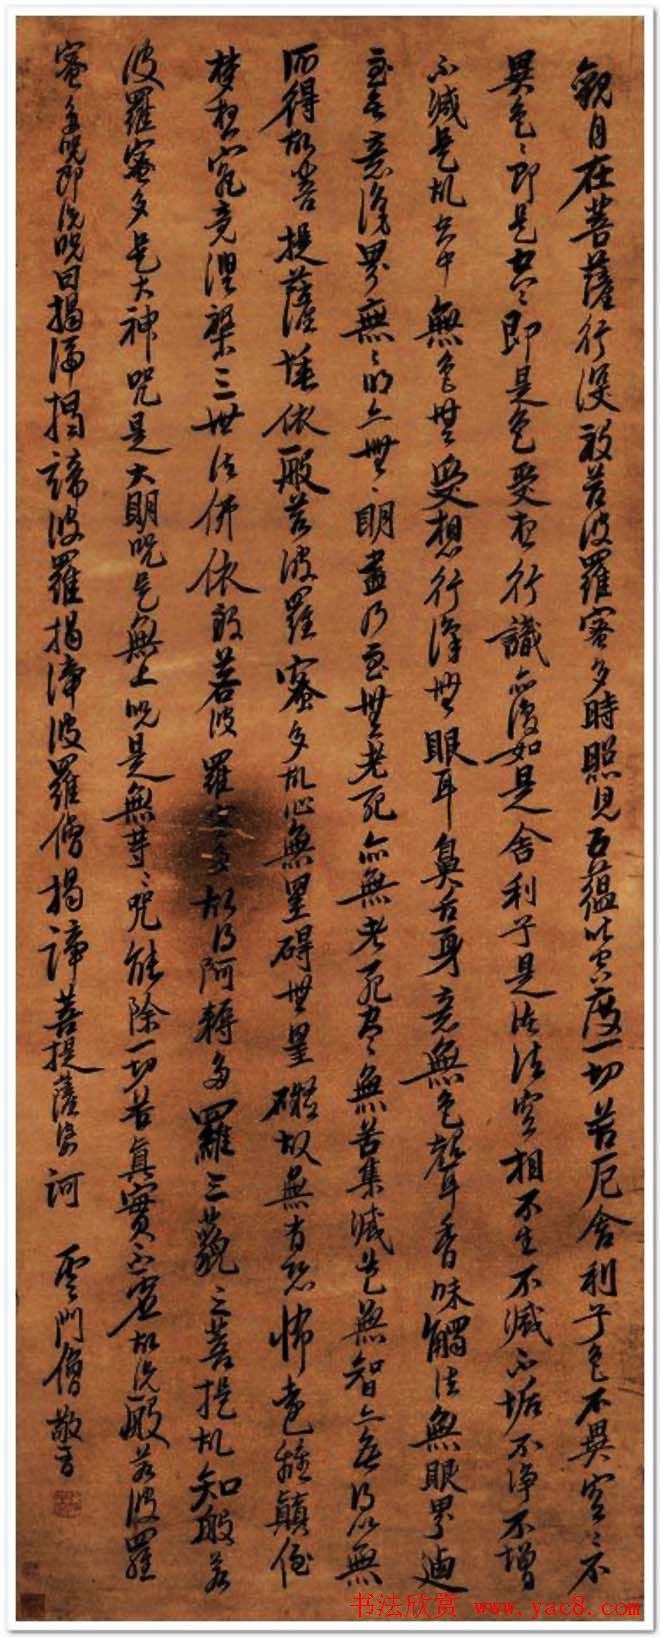 觀自在菩薩行深般若波羅蜜多時照見五蘊皆空度一切苦厄舍利子色不異空〻不
異色〻即是空〻即是色受想行識亦復如是舍利子是諸法空相不生不滅不垢不淨不增
不減是故空中無色無受想行識無眼耳鼻舌身意無色聲香味觸法無眼界迺
至無意識界無〻明亦無〻明盡乃至無老死亦無老死盡〻無苦集滅道無智亦無得以無
所得故菩提薩埵依般若波羅蜜多故心無罣碍無罣礙故無有恐怖遠離顛倒
夢想究竟涅槃三世諸佛依般若波羅蜜多故得阿耨多羅三藐三菩提故知般若
波羅蜜多是大神咒是大明咒是無上咒是無等〻咒能除一切苦真實不虛故說般若波羅
蜜多咒即說咒曰揭諦揭諦波羅揭諦波羅僧揭諦菩提薩婆訶 雲門僧敬
书法欣赏 www.yac8.com